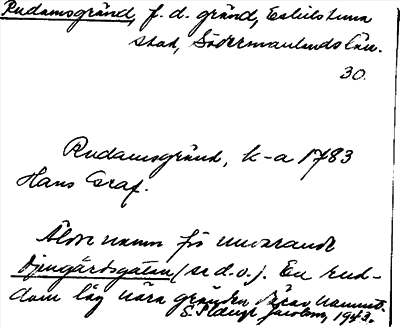 Rudamsgränd, f. d. gränd, Eskilstuna
stad, Södermanlands län.
30.
Rudamsgränd, k-a 1783
Hans Graf.
Äldre namn på nuvarande
Djurgårdsgatan (se d.o.). En rud-
dam låg nära gränden därav namnet.
1943.